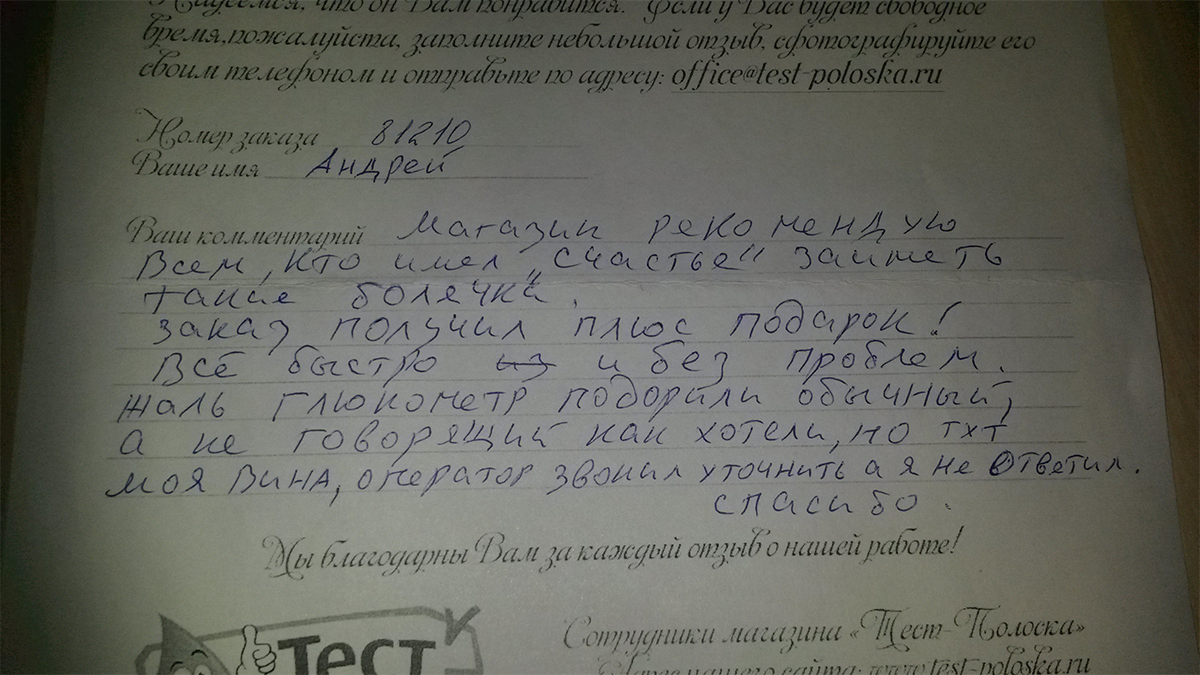 Надеемся, что он Вам понравится. Если у Вас будет свободное
время,пожалуйста, заполните небольшой отзыв, сфотографируйте его
своим телефоном и отправьте по адресу: office@test-poloska.ru
Номер заказа 81210
Ваше имя Андрей
Ваш комментарий Магазин рекомендую
Всем, кто имел „счастье“ заиметь
такие болячки.
Заказ получил плюс подарок!
Всё быстро и без проблем.
Жаль глюкометр подорили обычный,
а не говорящий как хотели, но тхт
моя вина, оператор звонил уточнить а я не ответил.
спасибо.
Мы благодарны Вам за каждый отзыв о нашей работе!
Тест
Сотрудники магазина «Тест-Полоска»
Адрес нашего сайта: www.test-poloska.ru